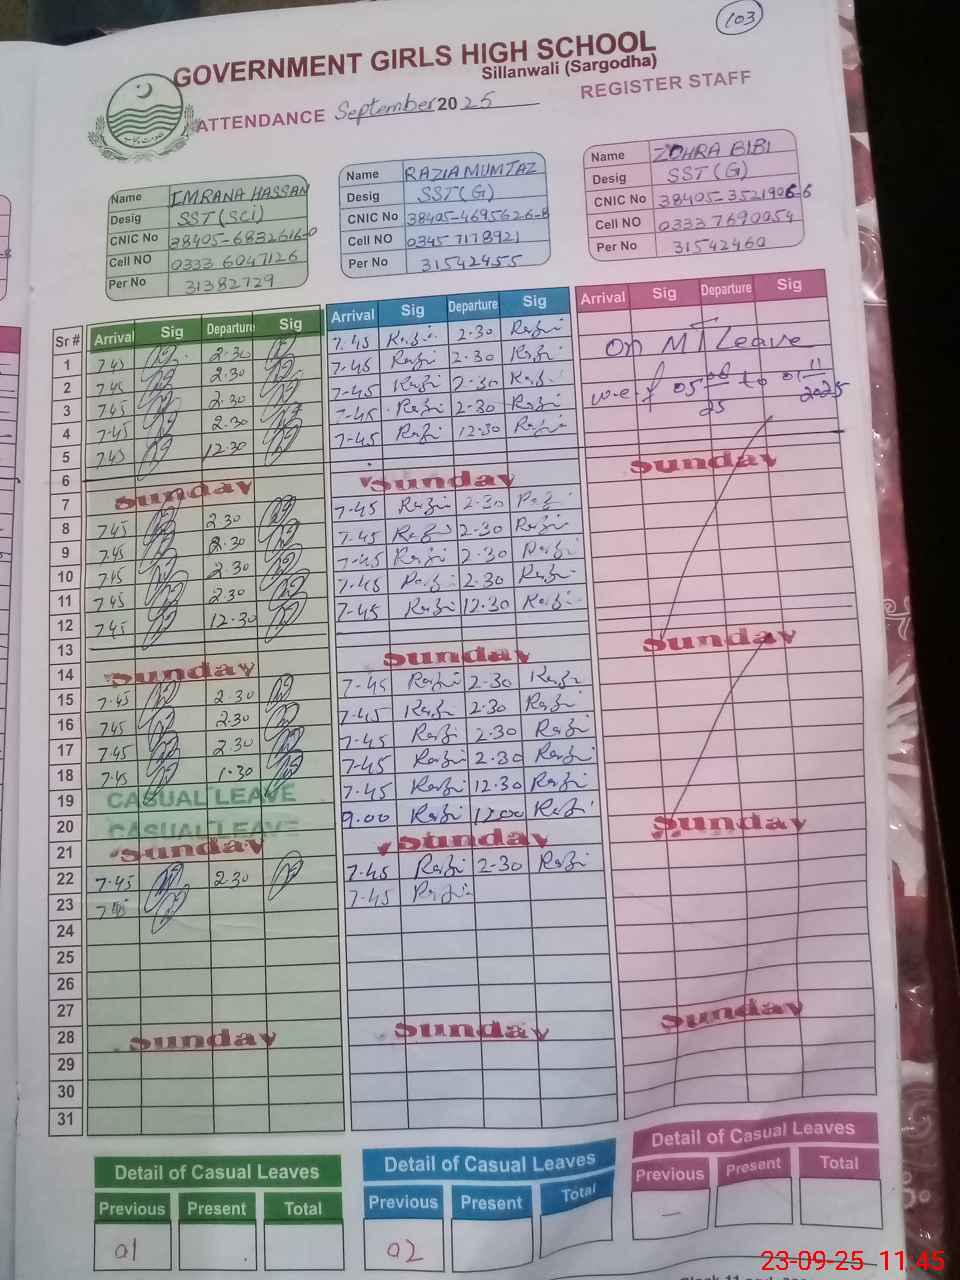 103
GOVERNMENT GIRLS HIGH SCHOOL
Sillanwali (Sargodha)
ATTENDANCE September 2025
REGISTER STAFF
Name IMRANA HASSAN
Desig SST (Sci)
CNIC No 38405-6832616-0
Cell NO 0333 6047126
Per No 31382729
Name RAZIA MUMTAZ
Desig SST (G)
CNIC No 38405-4695626-8
Cell NO 0345 7178921
Per No 31542455
Name ZOHRA BIBI
Desig SST (G)
CNIC No 38405-3521906-6
Cell NO 0333 7690054
Per No 31542460
Sr # Arrival Sig Departure Sig Arrival Sig Departure Sig Arrival Sig Departure Sig
1 7.45 2.30 7.45 Razi 2.30 Razi
2 7.45 2.30 7.45 Razi 2.30 Razi On Leave
3 7.45 2.30 7.45 Razi 2.30 Razi w.e.f 05 to 01 11
4 7.45 2.30 7.45 Razi 2.30 Razi 25 2025
5 7.45 12.30 7-45 Razi 12.30 Razi
6
7 Sunday Sunday Sunday
8 7.45 2.30 7-45 Razi 2-30 Razi
9 7.45 2.30 7-45 Razi 2-30 Razi
10 7.45 2.30 7-45 Razi 2-30 Razi
11 7.45 2.30 7-45 Razi 2-30 Razi
12 7.45 12.30 7-45 Razi 12-30 Razi
13
14 Sunday Sunday Sunday
15 7.45 2.30 7-45 Razi 2-30 Razi
16 7.45 2.30 7-45 Razi 2.30 Razi
17 7.45 2.30 7-45 Razi 2.30 Razi
18 7.45 1.30 7-45 Razi 2.30 Razi
19 CASUAL LEAVE 7-45 Razi 12.30 Razi
20 CASUAL LEAVE 9.00 Razi 12.00 Razi
21 Sunday Sunday Sunday
22 7.45 2.30 7-45 Razi 2-30 Razi
23 7.45 7-45 Razi
24
25
26
27
28 Sunday Sunday Sunday
29
30
31
Detail of Casual Leaves Detail of Casual Leaves Detail of Casual Leaves
Previous Present Total Previous Present Total Previous Present Total
01 02 —
23-09-25 11:45